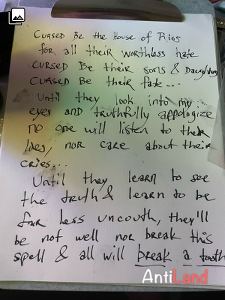 CURSED Be the House of Rias
for all their worthless hate
CURSED Be their sons & Daughters
CURSED Be their fate...
Until they look into my
eyes and truthfully appologize
no one will listen to their
lies, nor care about their
cries...
Until they learn to see
the truth & learn to be
far less uncouth, they'll
be not well nor break this
spell & all will break a tooth
AntiLand